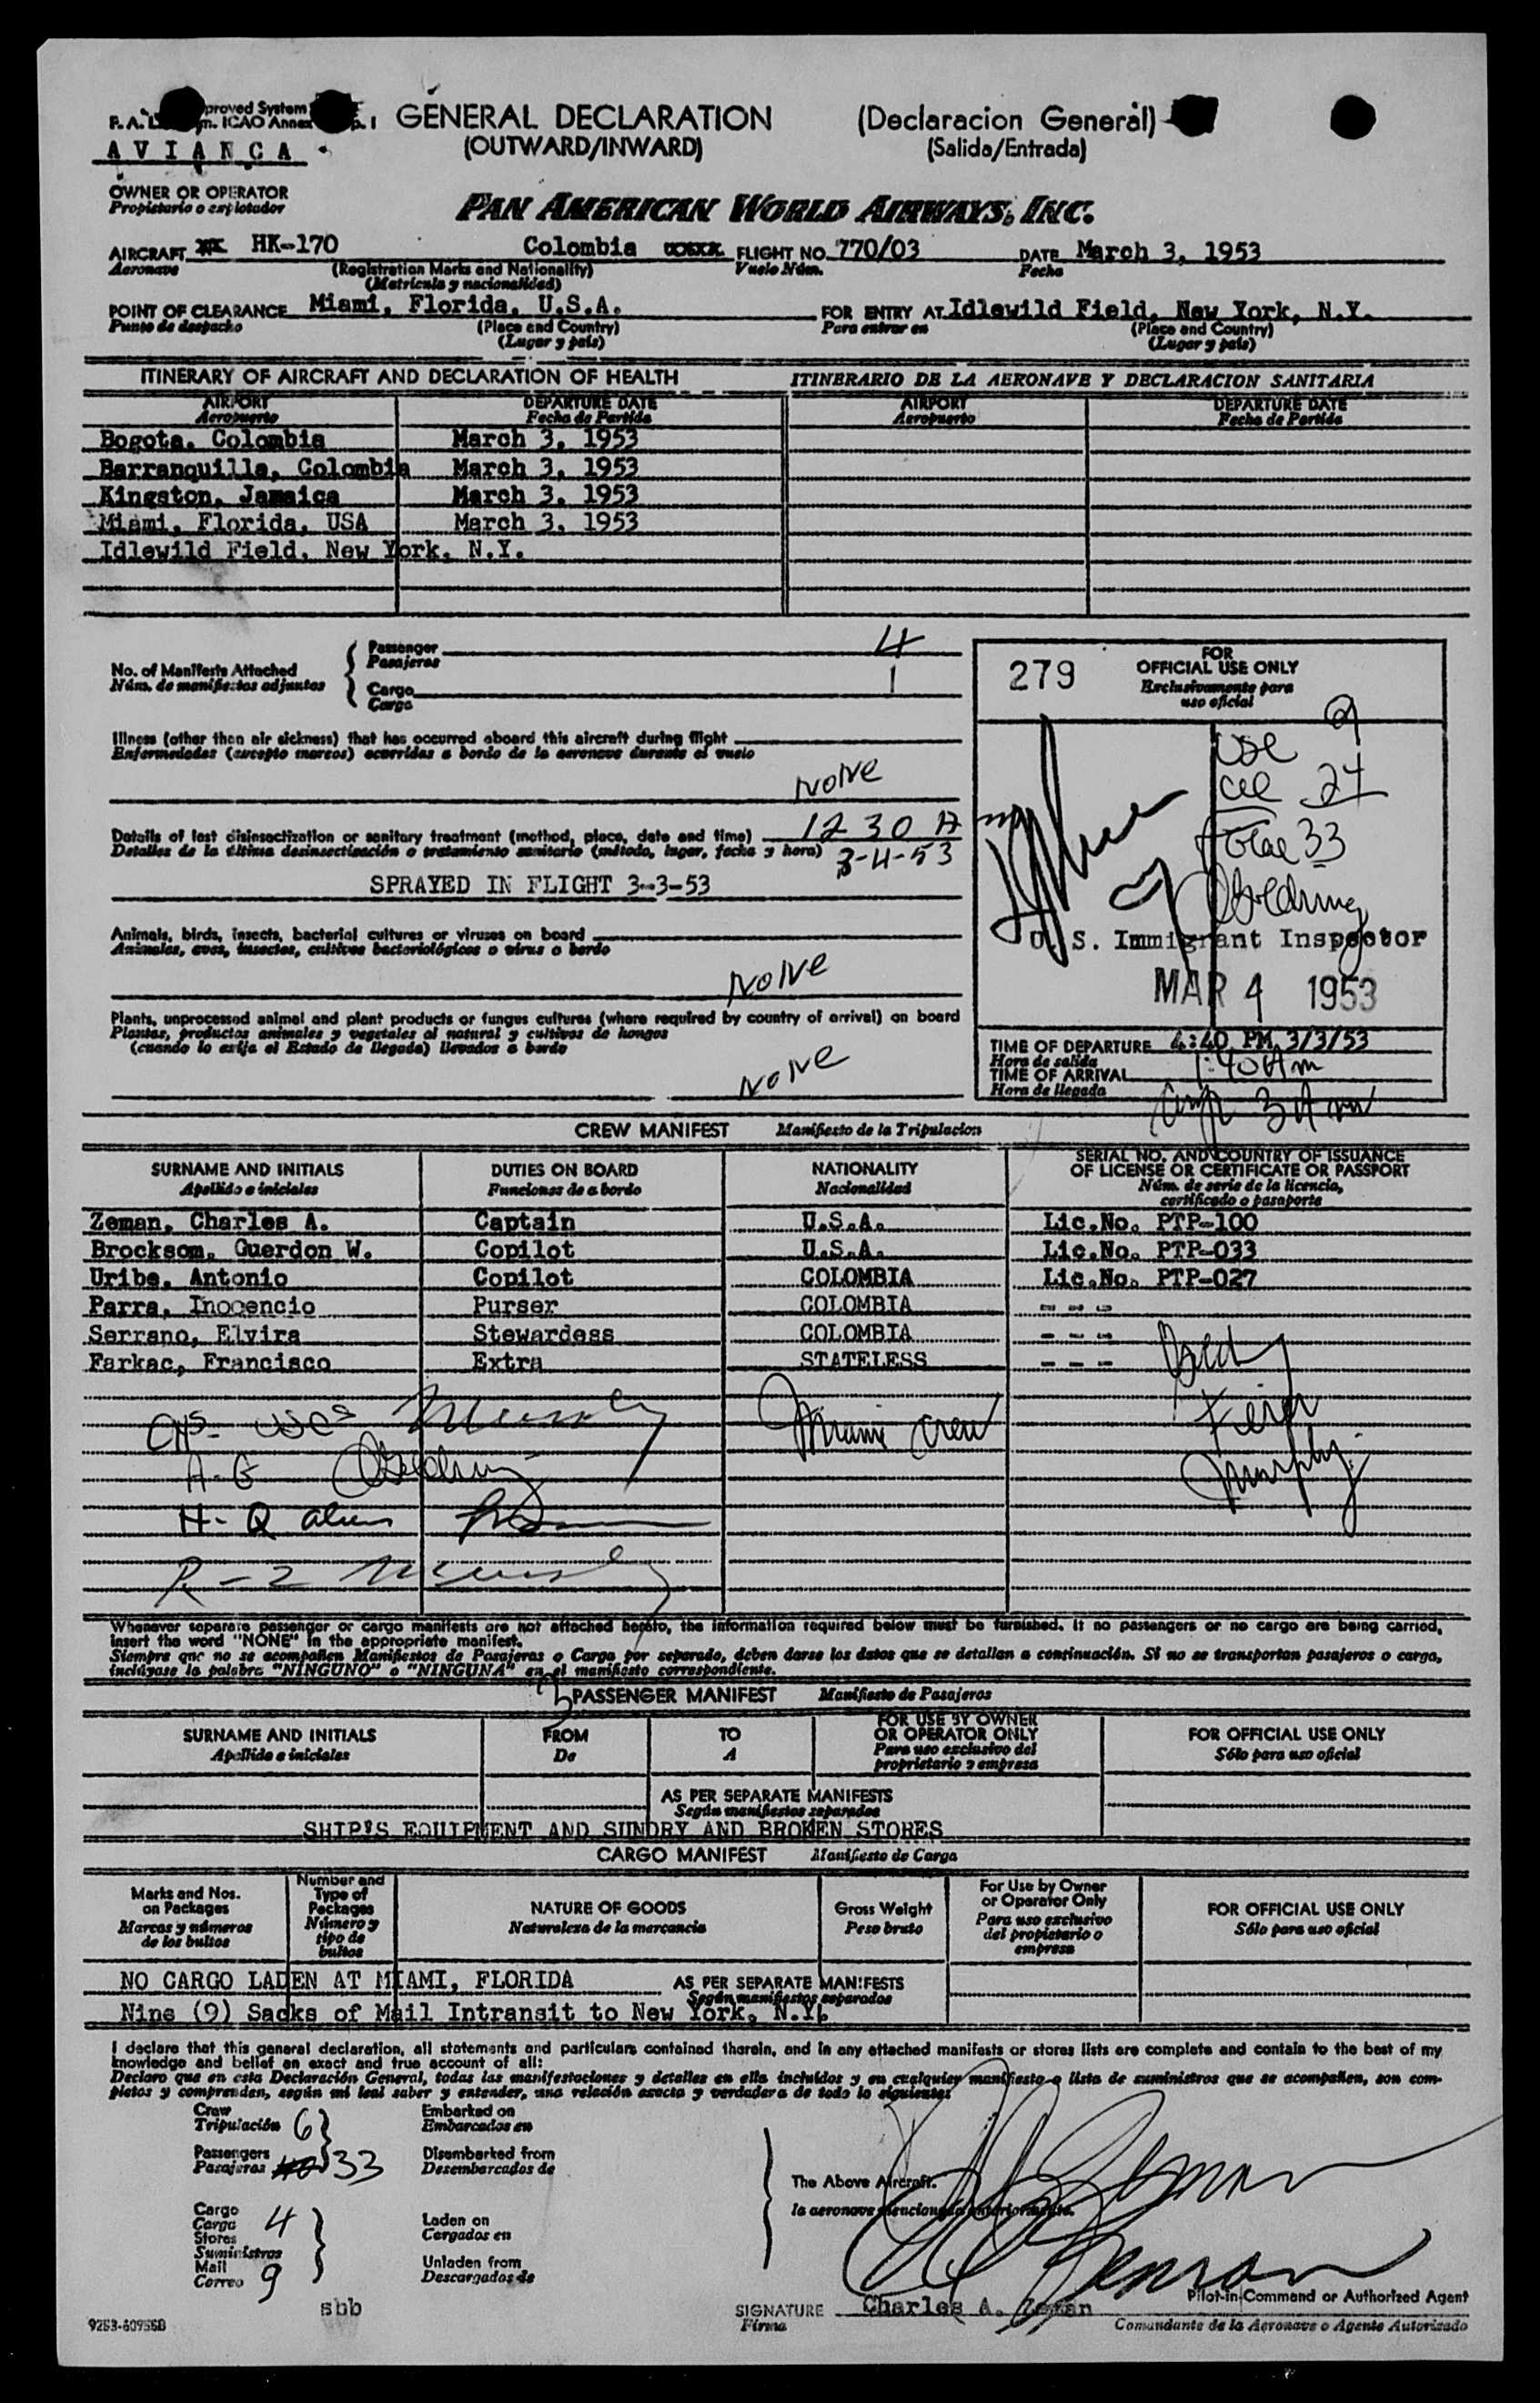 GENERAL DECLARATION (Declaracion General)
(OUTWARD/INWARD) (Salida/Entrada)
AVIANCA
OWNER OR OPERATOR
Propietario o explotador
PAN AMERICAN WORLD AIRWAYS, INC.
AIRCRAFT HK-170 Colombia FLIGHT NO. 770/03 DATE March 3, 1953
Aeronave (Registration Marks and Nationality) Vuelo Núm. Fecha
(Matrícula y nacionalidad)
POINT OF CLEARANCE Miami, Florida, U.S.A. FOR ENTRY AT Idlewild Field, New York, N.Y.
Punto de despacho (Place and Country) Para entrar en (Place and Country)
(Lugar y país) (Lugar y país)
ITINERARY OF AIRCRAFT AND DECLARATION OF HEALTH ITINERARIO DE LA AERONAVE Y DECLARACION SANITARIA
AIRPORT DEPARTURE DATE AIRPORT DEPARTURE DATE
Aeropuerto Fecha de Partida Aeropuerto Fecha de Partida
Bogota, Colombia March 3, 1953
Barranquilla, Colombia March 3, 1953
Kingston, Jamaica March 3, 1953
Miami, Florida, USA March 3, 1953
Idlewild Field, New York, N.Y.
No. of Manifests Attached
Núm. de manifiestos adjuntos
Passenger 4
Pasajeros
Cargo 1
Carga
279
FOR
OFFICIAL USE ONLY
Exclusivamente para
uso oficial
9
USC
24
33
U. S. Immigrant Inspector
MAR 4 1953
TIME OF DEPARTURE 4:40 PM 3/3/53
Hora de salida
TIME OF ARRIVAL 1:40 Am
Hora de llegada
3 Am
Illness (other than air sickness) that has occurred aboard this aircraft during flight
Enfermedades (excepto mareos) ocurridas a bordo de la aeronave durante el vuelo
NONE
Details of last disinsectization or sanitary treatment (method, place, date and time) 1230 A
Detalles de la última desinsectización o tratamiento sanitario (método, lugar, fecha y hora) 3-4-53
SPRAYED IN FLIGHT 3-3-53
Animals, birds, insects, bacterial cultures or viruses on board
Animales, aves, insectos, cultivos bacteriológicos o virus a bordo
NONE
Plants, unprocessed animal and plant products or fungus cultures (where required by country of arrival) on board
Plantas, productos animales y vegetales al natural y cultivos de hongos
(cuando lo exija el Estado de llegada) llevados a bordo
NONE
CREW MANIFEST Manifiesto de la Tripulacion
SURNAME AND INITIALS DUTIES ON BOARD NATIONALITY SERIAL NO. AND COUNTRY OF ISSUANCE
OF LICENSE OR CERTIFICATE OR PASSPORT
Apellido e iniciales Funciones de a bordo Nacionalidad Núm. de serie de la licencia,
certificado o pasaporte
Zeman, Charles A. Captain U.S.A. Lic.No. PTP-100
Brocksom, Guerdon W. Copilot U.S.A. Lic.No. PTP-033
Uribe, Antonio Copilot COLOMBIA Lic.No. PTP-027
Parra, Inocencio Purser COLOMBIA - - -
Serrano, Elvira Stewardess COLOMBIA - - -
Farkac, Francisco Extra STATELESS - - -
Miami Crew
Murphy
A-G
H-Q
R-Z
Whenever separate passenger or cargo manifests are not attached hereto, the information required below must be furnished. If no passengers or no cargo are being carried,
insert the word "NONE" in the appropriate manifest.
Siempre que no se acompañen Manifiestos de Pasajeros o Carga por separado, deben darse los datos que se detallan a continuación. Si no se transportan pasajeros o carga,
inclúyase la palabra "NINGUNO" o "NINGUNA" en el manifiesto correspondiente.
PASSENGER MANIFEST Manifiesto de Pasajeros
SURNAME AND INITIALS FROM TO FOR USE BY OWNER
OR OPERATOR ONLY FOR OFFICIAL USE ONLY
Apellido e iniciales De A Para uso exclusivo del
proprietario o empresa Sólo para uso oficial
AS PER SEPARATE MANIFESTS
Según manifiestos separados
SHIP'S EQUIPMENT AND SUNDRY AND BROKEN STORES
CARGO MANIFEST Manifiesto de Carga
Marks and Nos.
on Packages
Marcas y números
de los bultos
Number and
Type of
Packages
Número y
tipo de
bultos
NATURE OF GOODS
Naturaleza de la mercancía
Gross Weight
Peso bruto
For Use by Owner
or Operator Only
Para uso exclusivo
del propietario o
empresa
FOR OFFICIAL USE ONLY
Sólo para uso oficial
NO CARGO LADEN AT MIAMI, FLORIDA AS PER SEPARATE MANIFESTS
Según manifiestos separados
Nine (9) Sacks of Mail Intransit to New York, N.Y.
I declare that this general declaration, all statements and particulars contained therein, and in any attached manifests or stores lists are complete and contain to the best of my
knowledge and belief an exact and true account of all:
Declaro que en esta Declaración General, todas las manifestaciones y detalles en ella incluídos y en cualquier manifiesto o lista de suministros que se acompañen, son com-
pletos y comprenden, según mi leal saber y entender, una relación exacta y verdadera de todo lo siguiente:
Crew 6 Embarked on
Tripulación Embarcados en
Passengers 33 Disembarked from
Pasajeros Desembarcados de
The Above Aircraft.
la aeronave mencionada anteriormente.
Cargo 4 Laden on
Carga Cargados en
Stores
Suministros
Mail 9 Unladen from
Correo Descargados de
sbb
Pilot-in-Command or Authorized Agent
SIGNATURE Charles A. Zeman
Firma Comandante de la Aeronave o Agente Autorizado